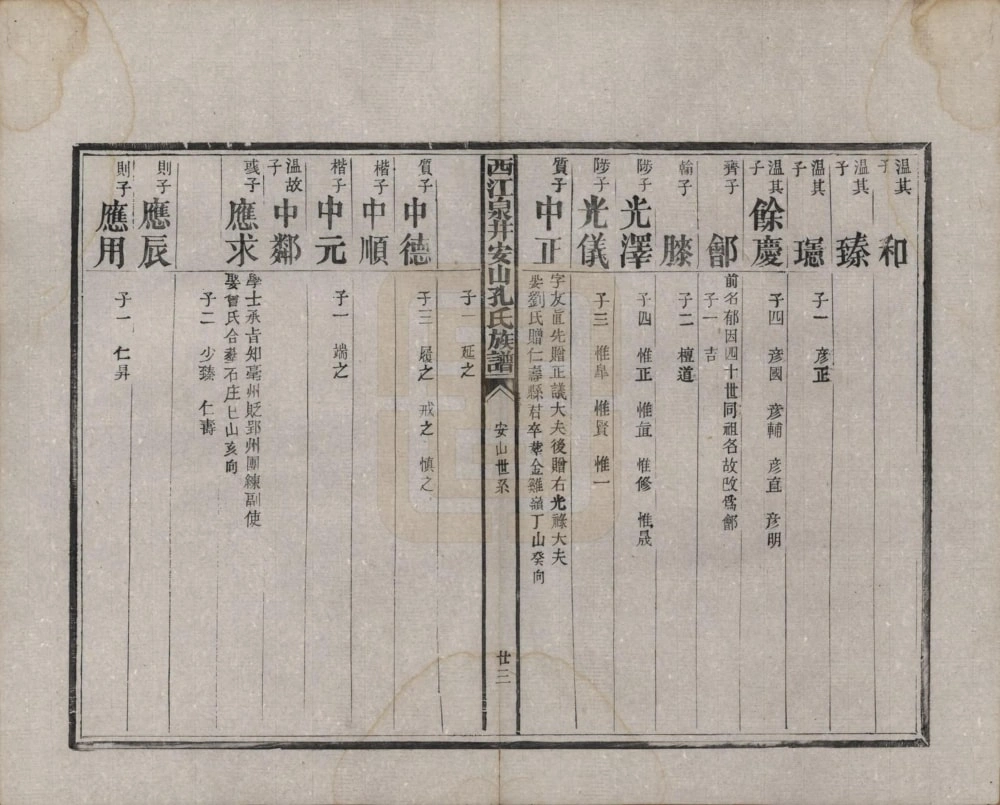 溫其子 和
溫其子 臻
溫其子 瓗 子一 彥正
溫其子 餘慶 子四 彥國 彥輔 彥直 彥明
齊子 鄶 前名郁因四十世同祖名故改爲鄶
子一 吉
輪子 滕 子二 檀道
陟子 光澤 子四 惟正 惟直 惟修 惟晟
陟子 光儀 子三 惟臯 惟賢 惟一
質子 中正 字友直先贈正議大夫後贈右光祿大夫
娶劉氏贈仁壽縣君卒葬金雞嶺丁山癸向
西江泉井安山孔氏族譜 安山世系 廿三
子一 延之
質子 中德 子三 履之 戒之 慎之
楷子 中順
楷子 中元 子一 端之
溫故子 中鄰
彧子 應求 學士承旨知亳州貶郢州團練副使
娶曾氏合葬石庄巳山亥向
子二 少臻 仁壽
則子 應辰
則子 應用 子一 仁昇